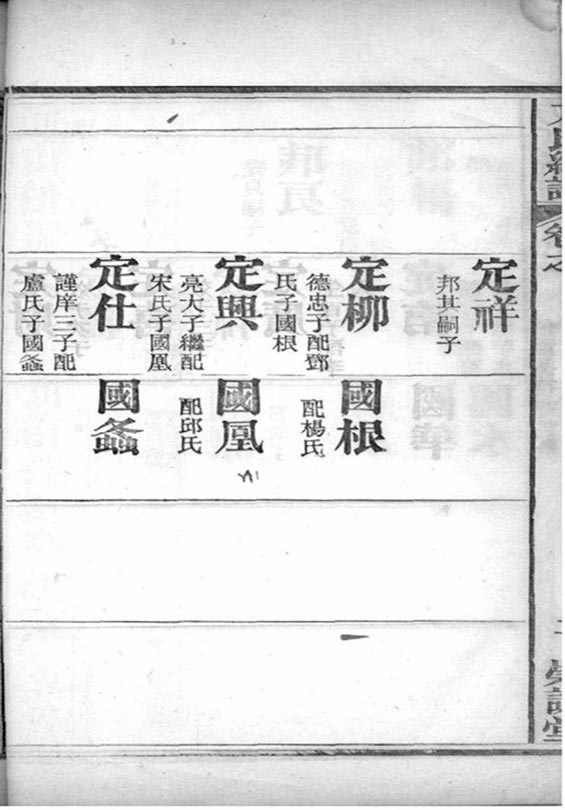 定祥
邦其嗣子
定柳
德忠子配鄧
氏子國根
定興
亮大子繼配
宋氏子國凰
定仕
謹庠三子配
盧氏子國螽
國根
配楊氏
國凰
配邱氏
國螽